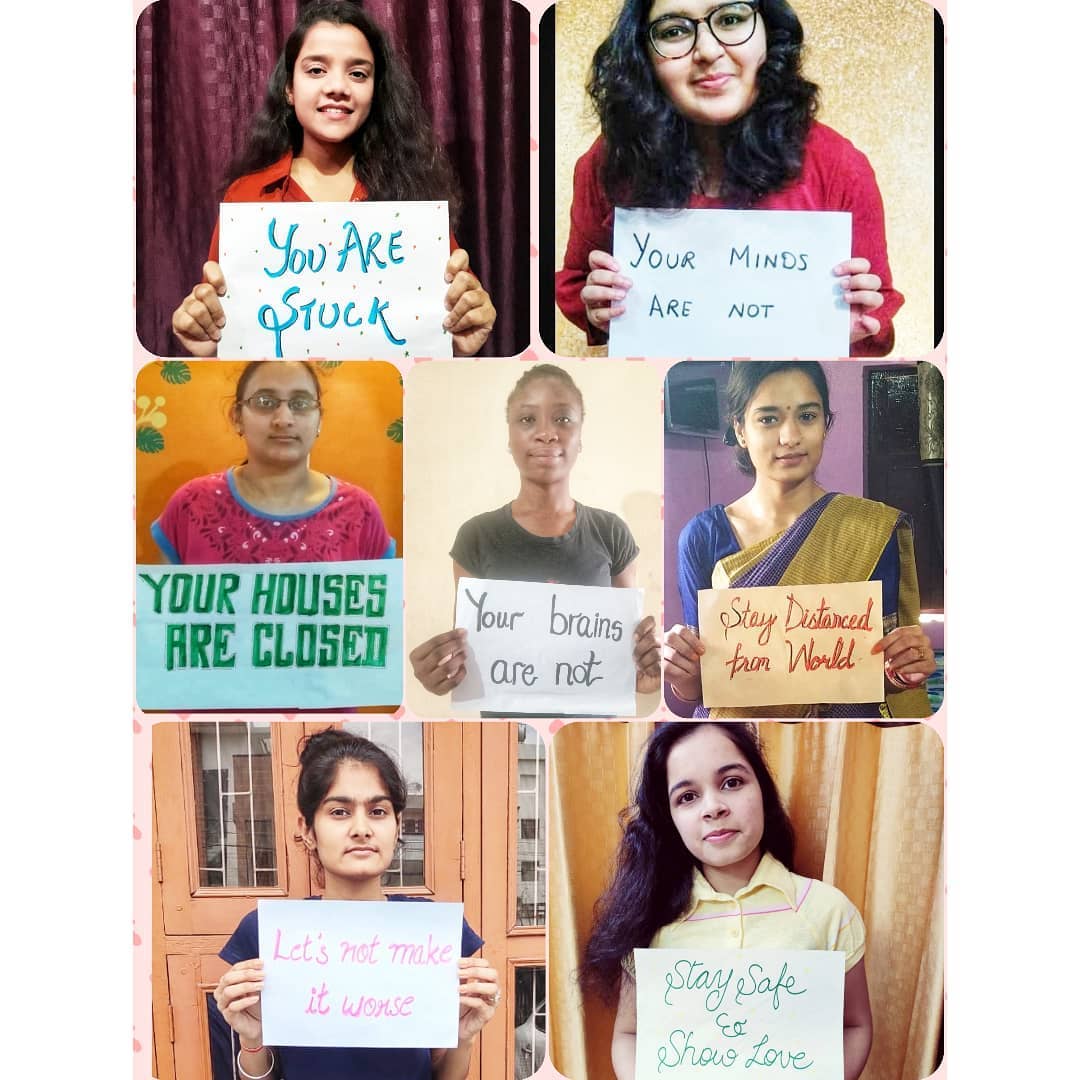 You Are
Stuck
Your Minds
Are Not
YOUR HOUSES
ARE CLOSED
Your brains
are not
Stay Distanced
from World
Let's not make
it worse
Stay Safe
&
Show Love